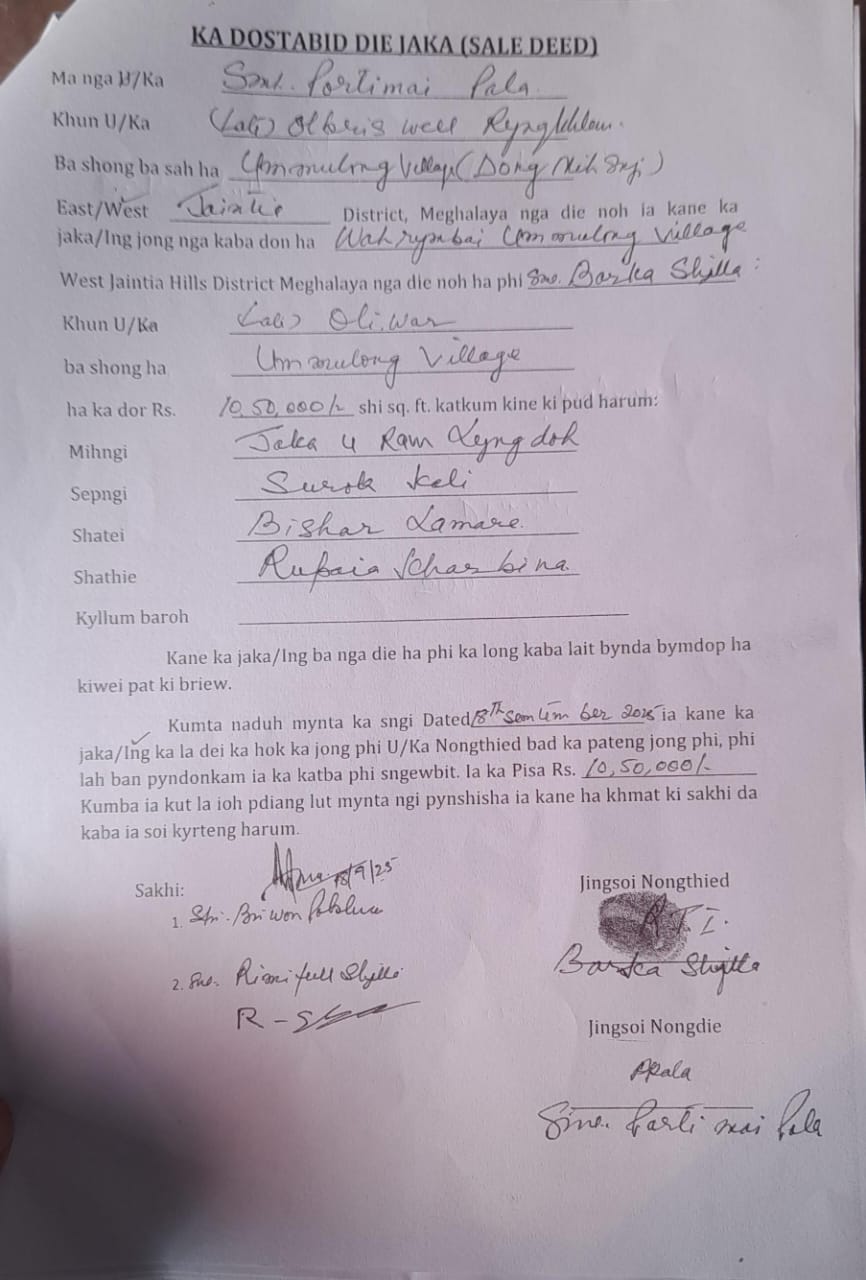 KA DOSTABID DIE JAKA (SALE DEED)
Ma nga U/Ka Smt. Portimai Pala
Khun U/Ka (Late)
Ba shong ba sah ha Ummulong Village (Dong Mih Sngi)
East/West Jaintia District, Meghalaya nga die noh ia kane ka
jaka/Ing jong nga kaba don ha Wahrymbai Ummulong Village
West Jaintia Hills District Meghalaya nga die noh ha phi Smt. Barka Shylla :
Khun U/Ka (Late) Oli. War
ba shong ha Ummulong Village
ha ka dor Rs. 10,50,000/- shi sq. ft. katkum kine ki pud harum:
Mihngi Jaka U Ram Lyngdoh
Sepngi Surok Keli
Shatei Bishar Lamare.
Shathie Rupaia
Kyllum baroh
Kane ka jaka/Ing ba nga die ha phi ka long kaba lait bynda bymdop ha
kiwei pat ki briew.
Kumta naduh mynta ka sngi Dated 18th 2025 ia kane ka
jaka/Ing ka la dei ka hok ka jong phi U/Ka Nongthied bad ka pateng jong phi, phi
lah ban pyndonkam ia ka katba phi sngewbit. Ia ka Pisa Rs. 10,50,000/-
Kumba ia kut la ioh pdiang lut mynta ngi pynshisha ia kane ha khmat ki sakhi da
kaba ia soi kyrteng harum.
18/9/25
Sakhi:
1. Shri. Briwon
2. Smt. Rimifull Shylla.
R - 
Jingsoi Nongthied
R.T.I.
Barka Shylla
Jingsoi Nongdie
PPala
Smt. Parti mai Pala